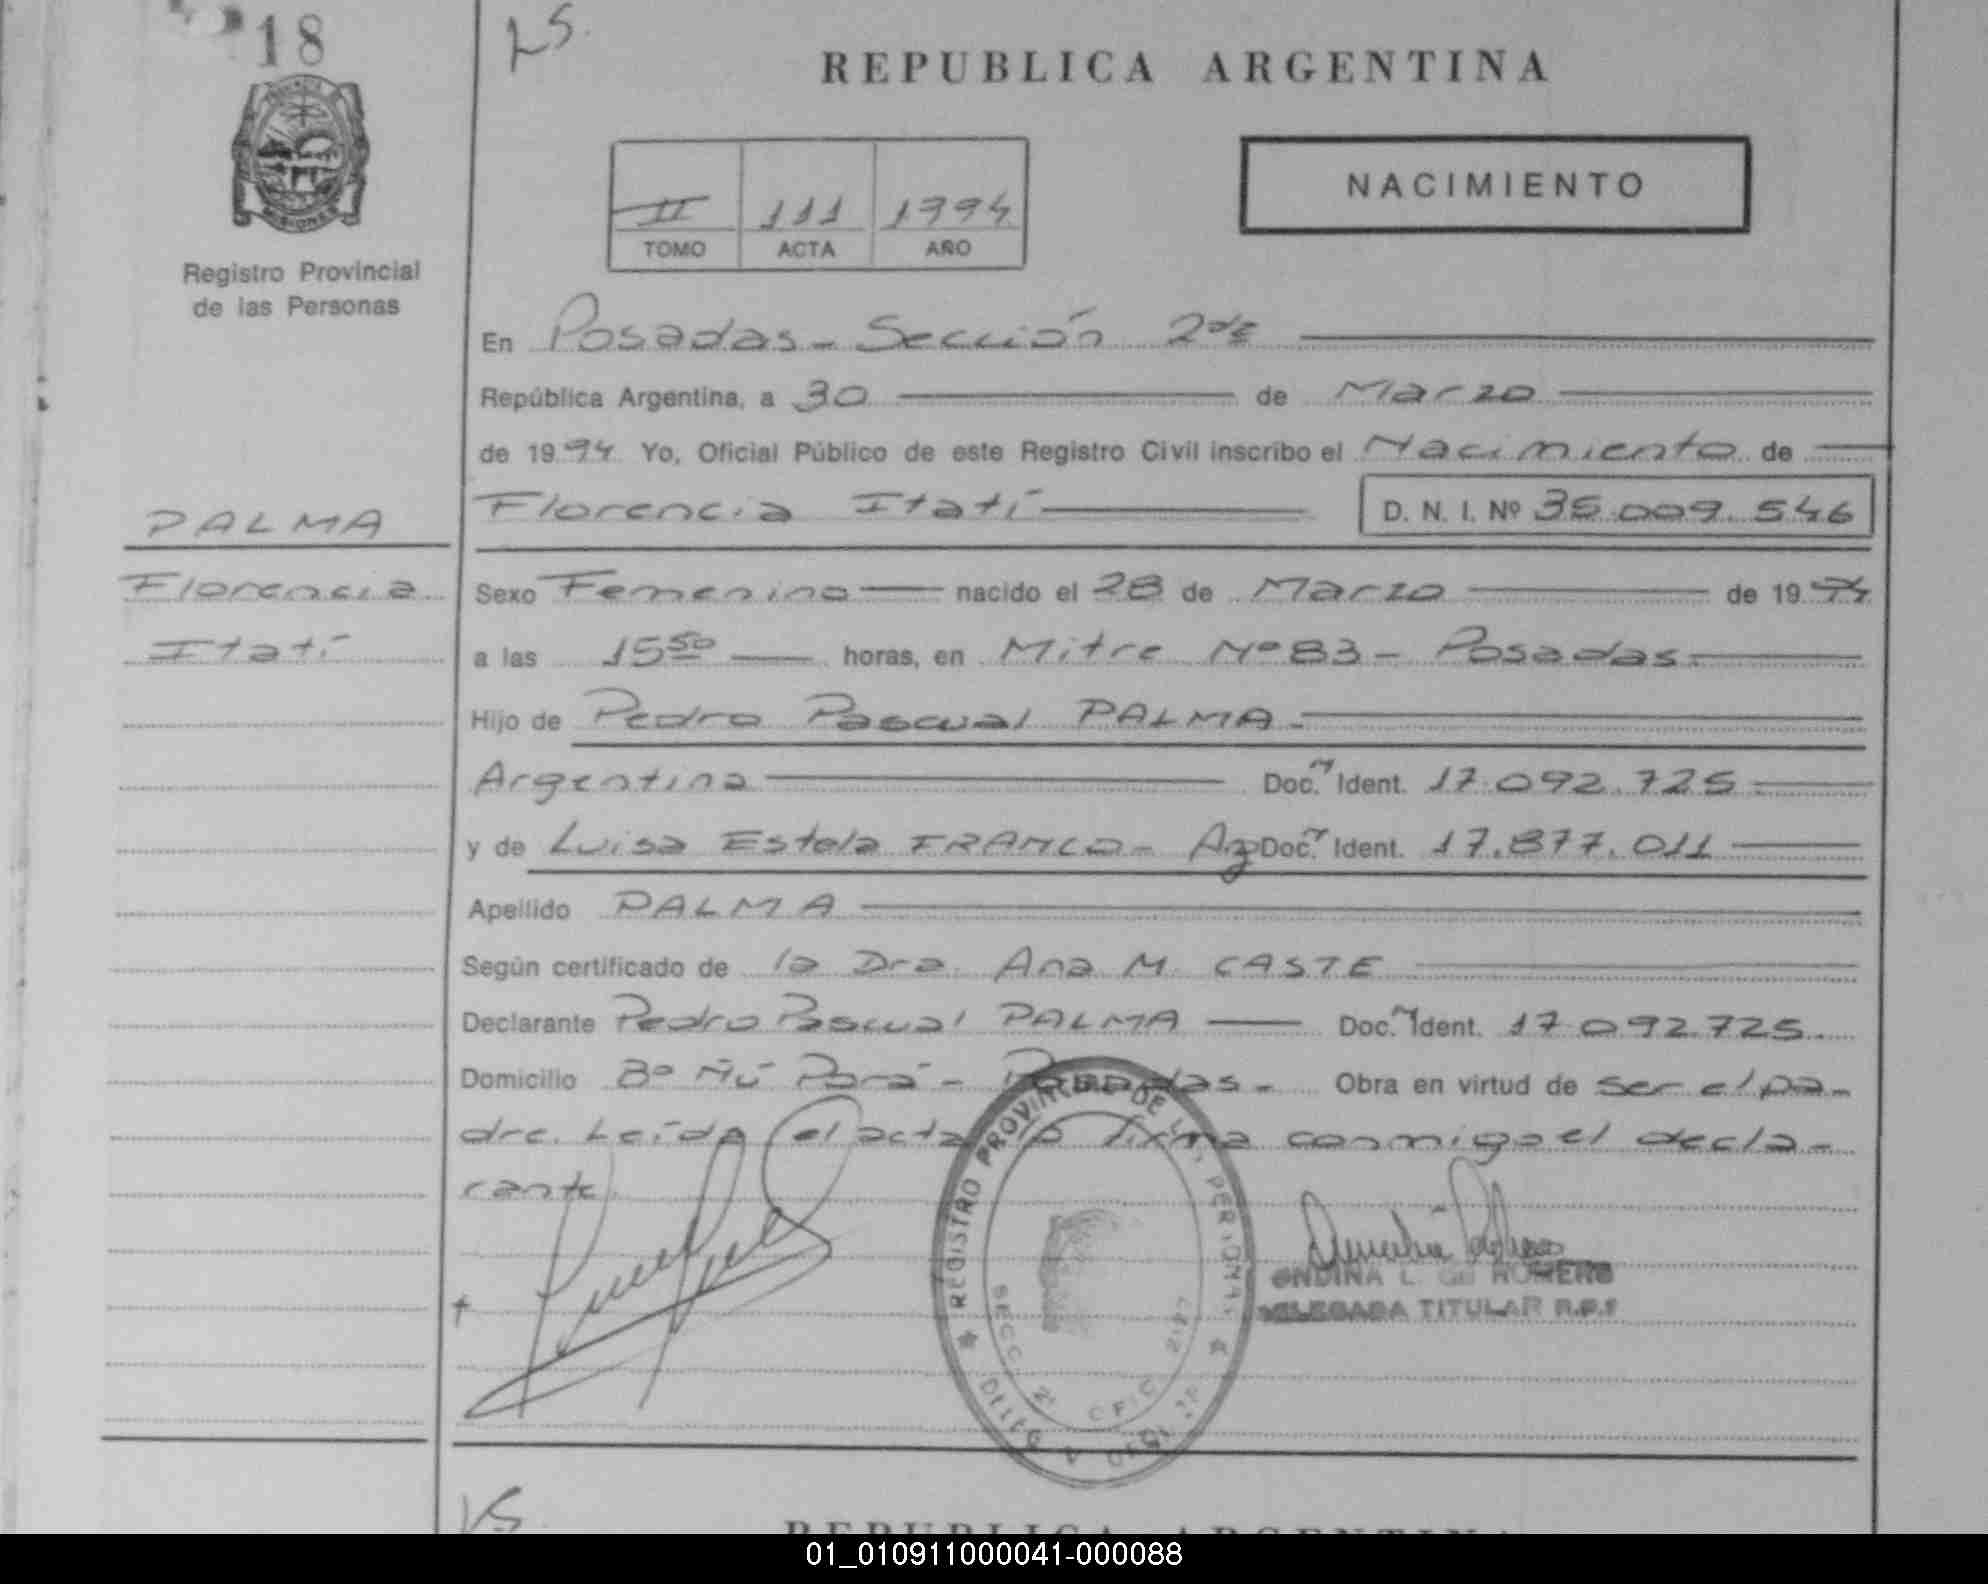 18
REPUBLICA ARGENTINA
MISIONES
Registro Provincial
de las Personas
II 111 1994
TOMO ACTA AÑO
NACIMIENTO
En Posadas - Sección 2da
República Argentina, a 30 de Marzo
de 1994 Yo, Oficial Público de este Registro Civil inscribo el Nacimiento de
PALMA
Florencia Itatí D. N. I. Nº 35.009.546
Florencia
Sexo Femenino nacido el 28 de Marzo de 1994
Itatí
a las 15 50 horas, en Mitre Nº 83 - Posadas.
Hijo de Pedro Pascual PALMA -
Argentina Doc. Ident. 17.092.725
y de Luisa Estela FRANCO - Doc. Ident. 17.877.011
Apellido PALMA
Según certificado de la Dra. Ana M. CASTE
Declarante Pedro Pascual PALMA Doc. Ident. 17.092.725.
Domicilio Bº Ñú Porá - Posadas - Obra en virtud de ser el pa-
dre. Leída el acta la firma conmigo el decla-
rante.
REGISTRO PROVINCIAL DE LAS PERSONAS
SECC. 2ª OFIC.
ONDINA L. DE ROMERO
DELEGADA TITULAR R.P.P
REPUBLICA ARGENTINA
01_010911000041-000088